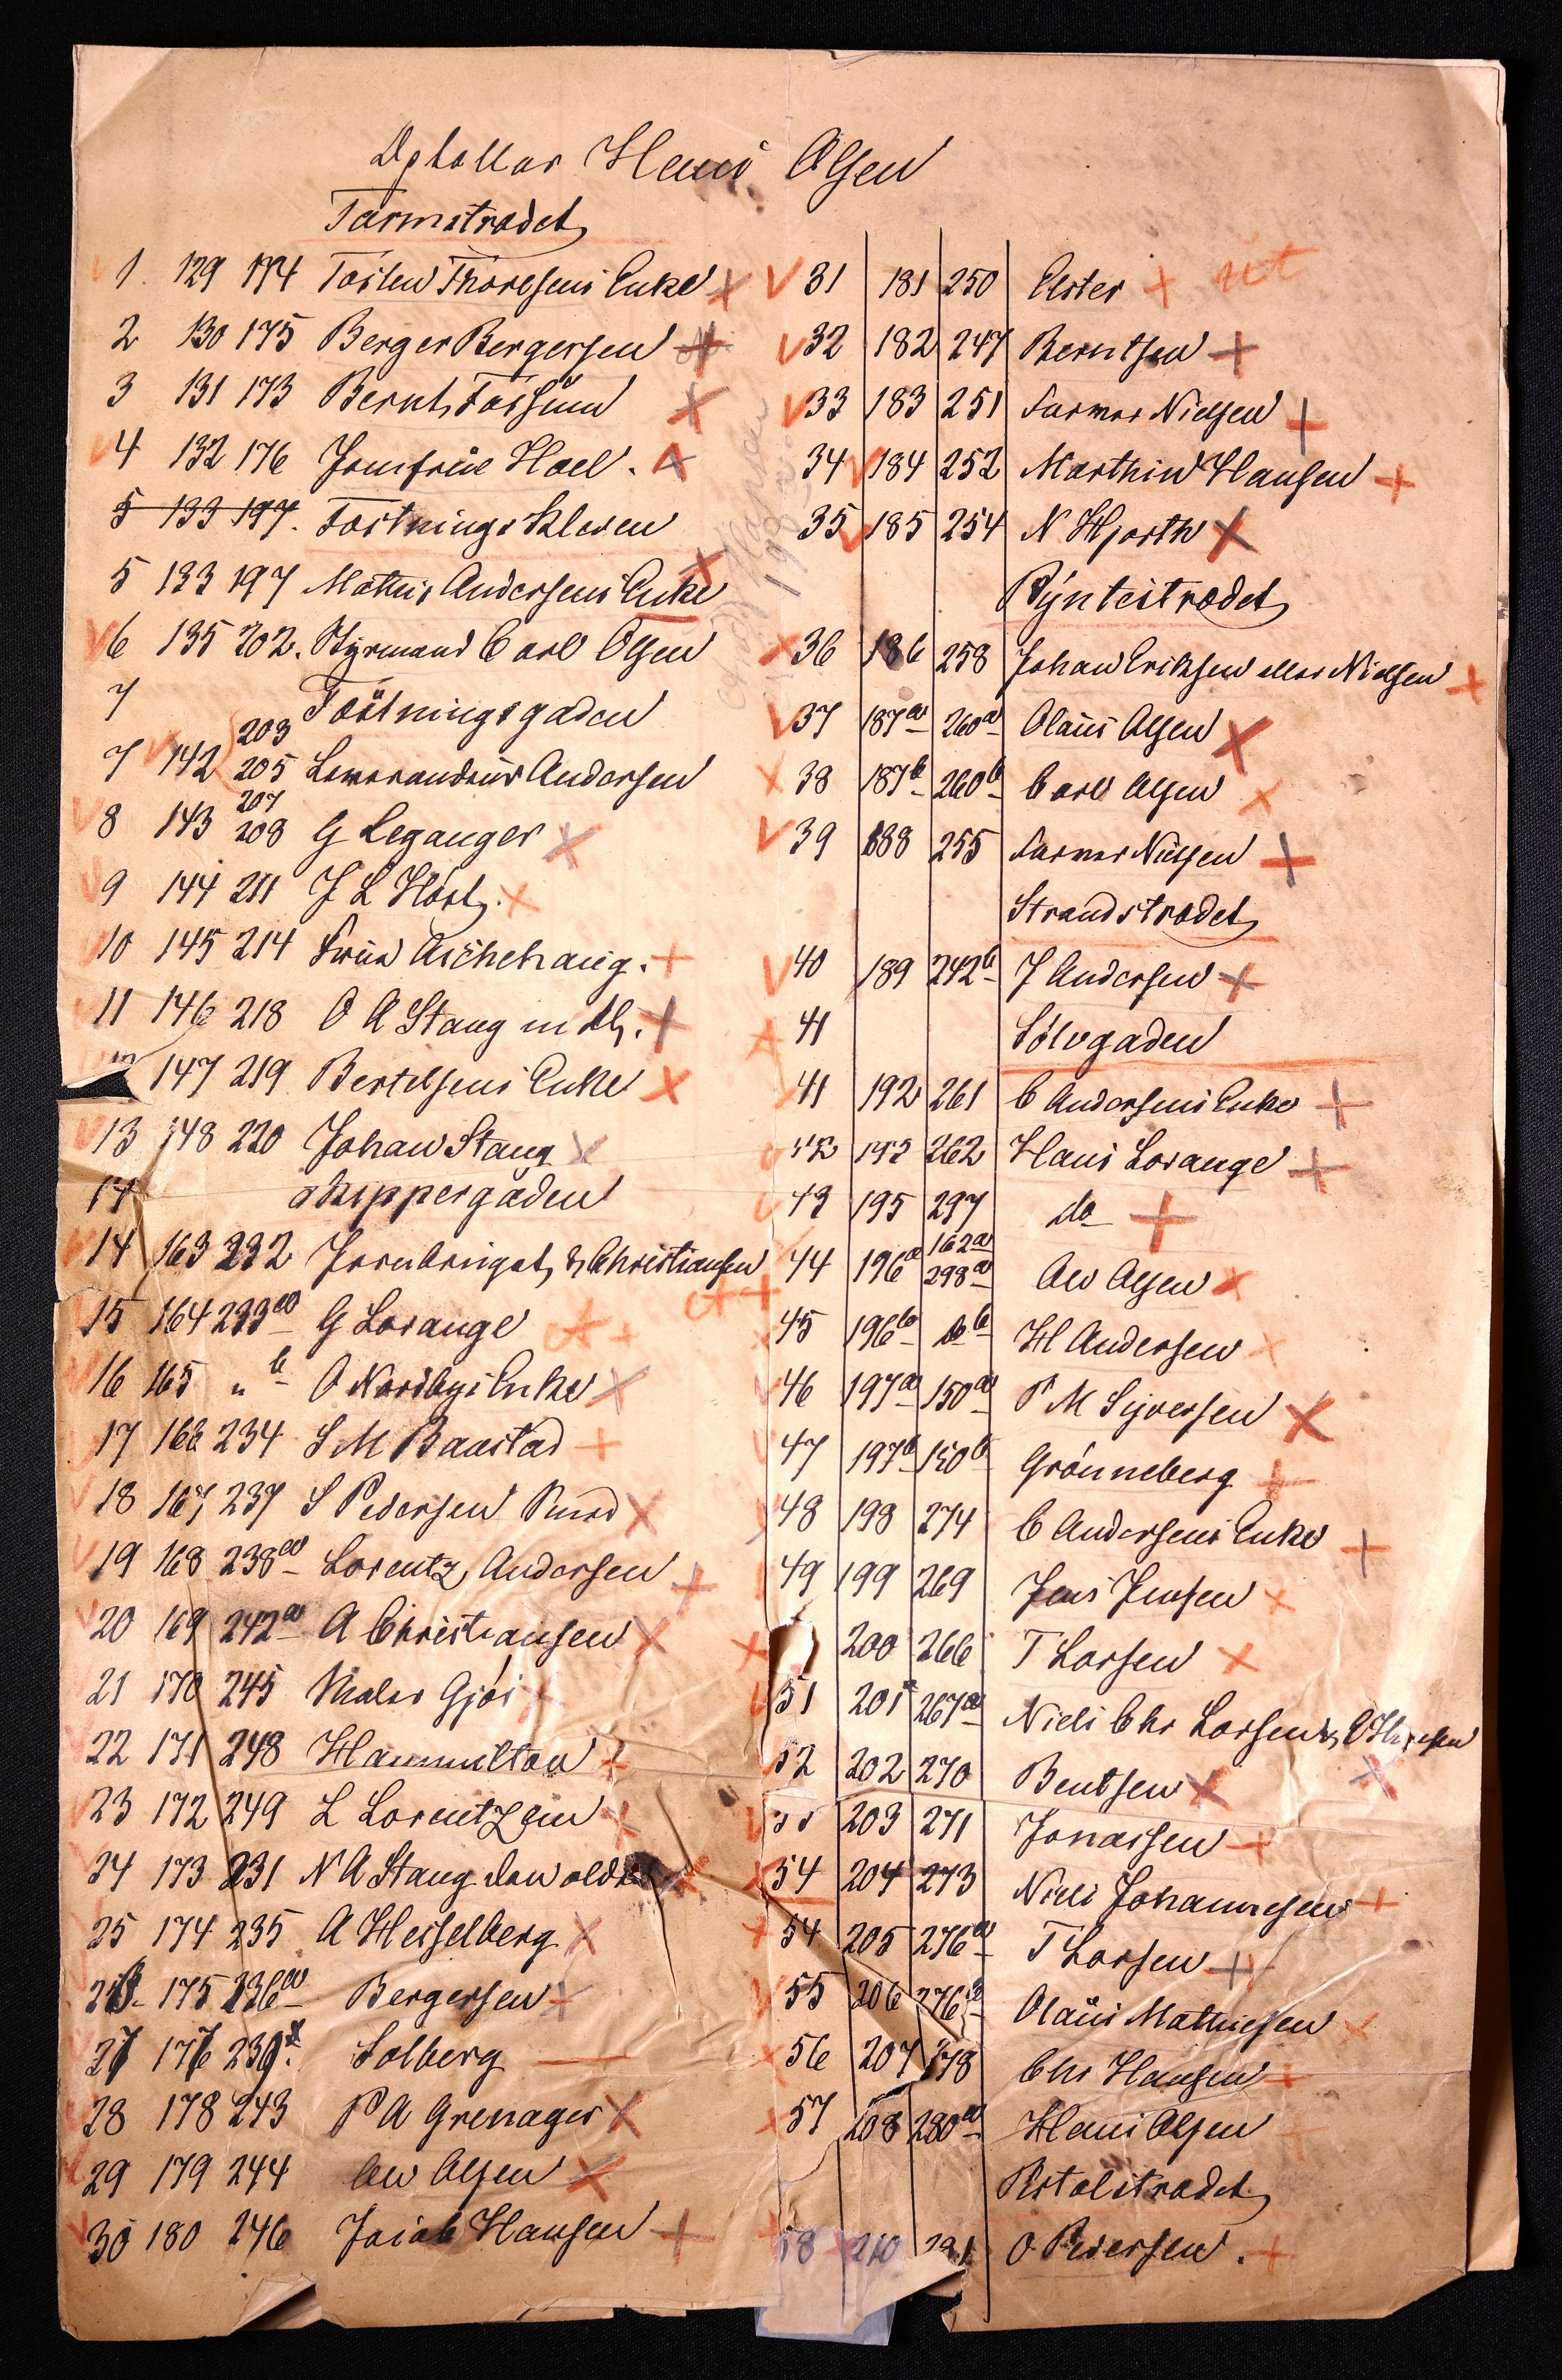 Opholler Hans Olsen
Tarmstrædet
1. 129 174 Torsten Thoresens Enke
2 130 175 Berger Bergersen
3 131 173 Bernt Fossum
4 132 176 Jomfrue Hoel.
5 133 197. Fæstnings Kleven
5 133 197 Mathis Andersens Enke
6 135 202. Styrmand Carl Olsen
7 Fæstningsgaden
7 142 203 205 Andersen
8 143 207 208 G Leganger
9 144 211 J L Hört.
10 145 214 Frue Aschehoug.
11 146 218 O A Stang m dl.
147 219 Bertelsens Enke
13 148 220 Johan Stang
14 Skippergaden
14 163 232 Christiansen
15 164 233a G Lorange
16 165 " b O Nordbys Enke
17 166 234 S M Baastad
18 167 237 S Pedersen Ruud
19 168 238a Lorentz Andersen
20 169 242a A Christiansen
21 170 245 Maler Gjös
22 171 248 Hammilton
23 172 249 L Lorentzen
24 173 231 N A Stang den ældre
25 174 235 A Hesselberg
26 175 236a Bergersen
27 176 239 Solberg
28 178 243 P A Grenager
29 179 244 An Olsen
30 180 246 Jacob Hansen
31 181 250 Elster ut
32 182 247 Berntsen
33 183 251 Farver Nielsen
34 184 252 Marthin Hansen
35 185 254 N Hjorth
Pyntestrædet
36 186 258 Johan Eriksen eller Nielsen
37 187a 260a Olaus Olsen
38 187b 260b Carl Olsen
39 188 255 Farver Nielsen
Strandstrædet
40 189 242b J Andersen
41 Sölvgaden
41 192 261 C Andersens Enke
42 193 262 Hans Lorange
43 195 297 do
44 196a 162a 298a An Olsen
45 196b do b H Andersen
46 197a 150a P M Syversen
47 197b 150b Grönneberg
48 198 274 C Andersens Enke
49 199 269 Jens Jensen
200 266 T Larsen
51 201 267a Niels Chr Larsen &
52 202 270 Bentsen
203 271 Jonassen
54 204 273 Niels Johannesen
54 205 276a T Larsen
55 206 276 Olaus Mathiesen
56 207 278 Chr Hansen
57 208 280a Hans Olsen
Pistolstrædet
58 210 291 O Pedersen.